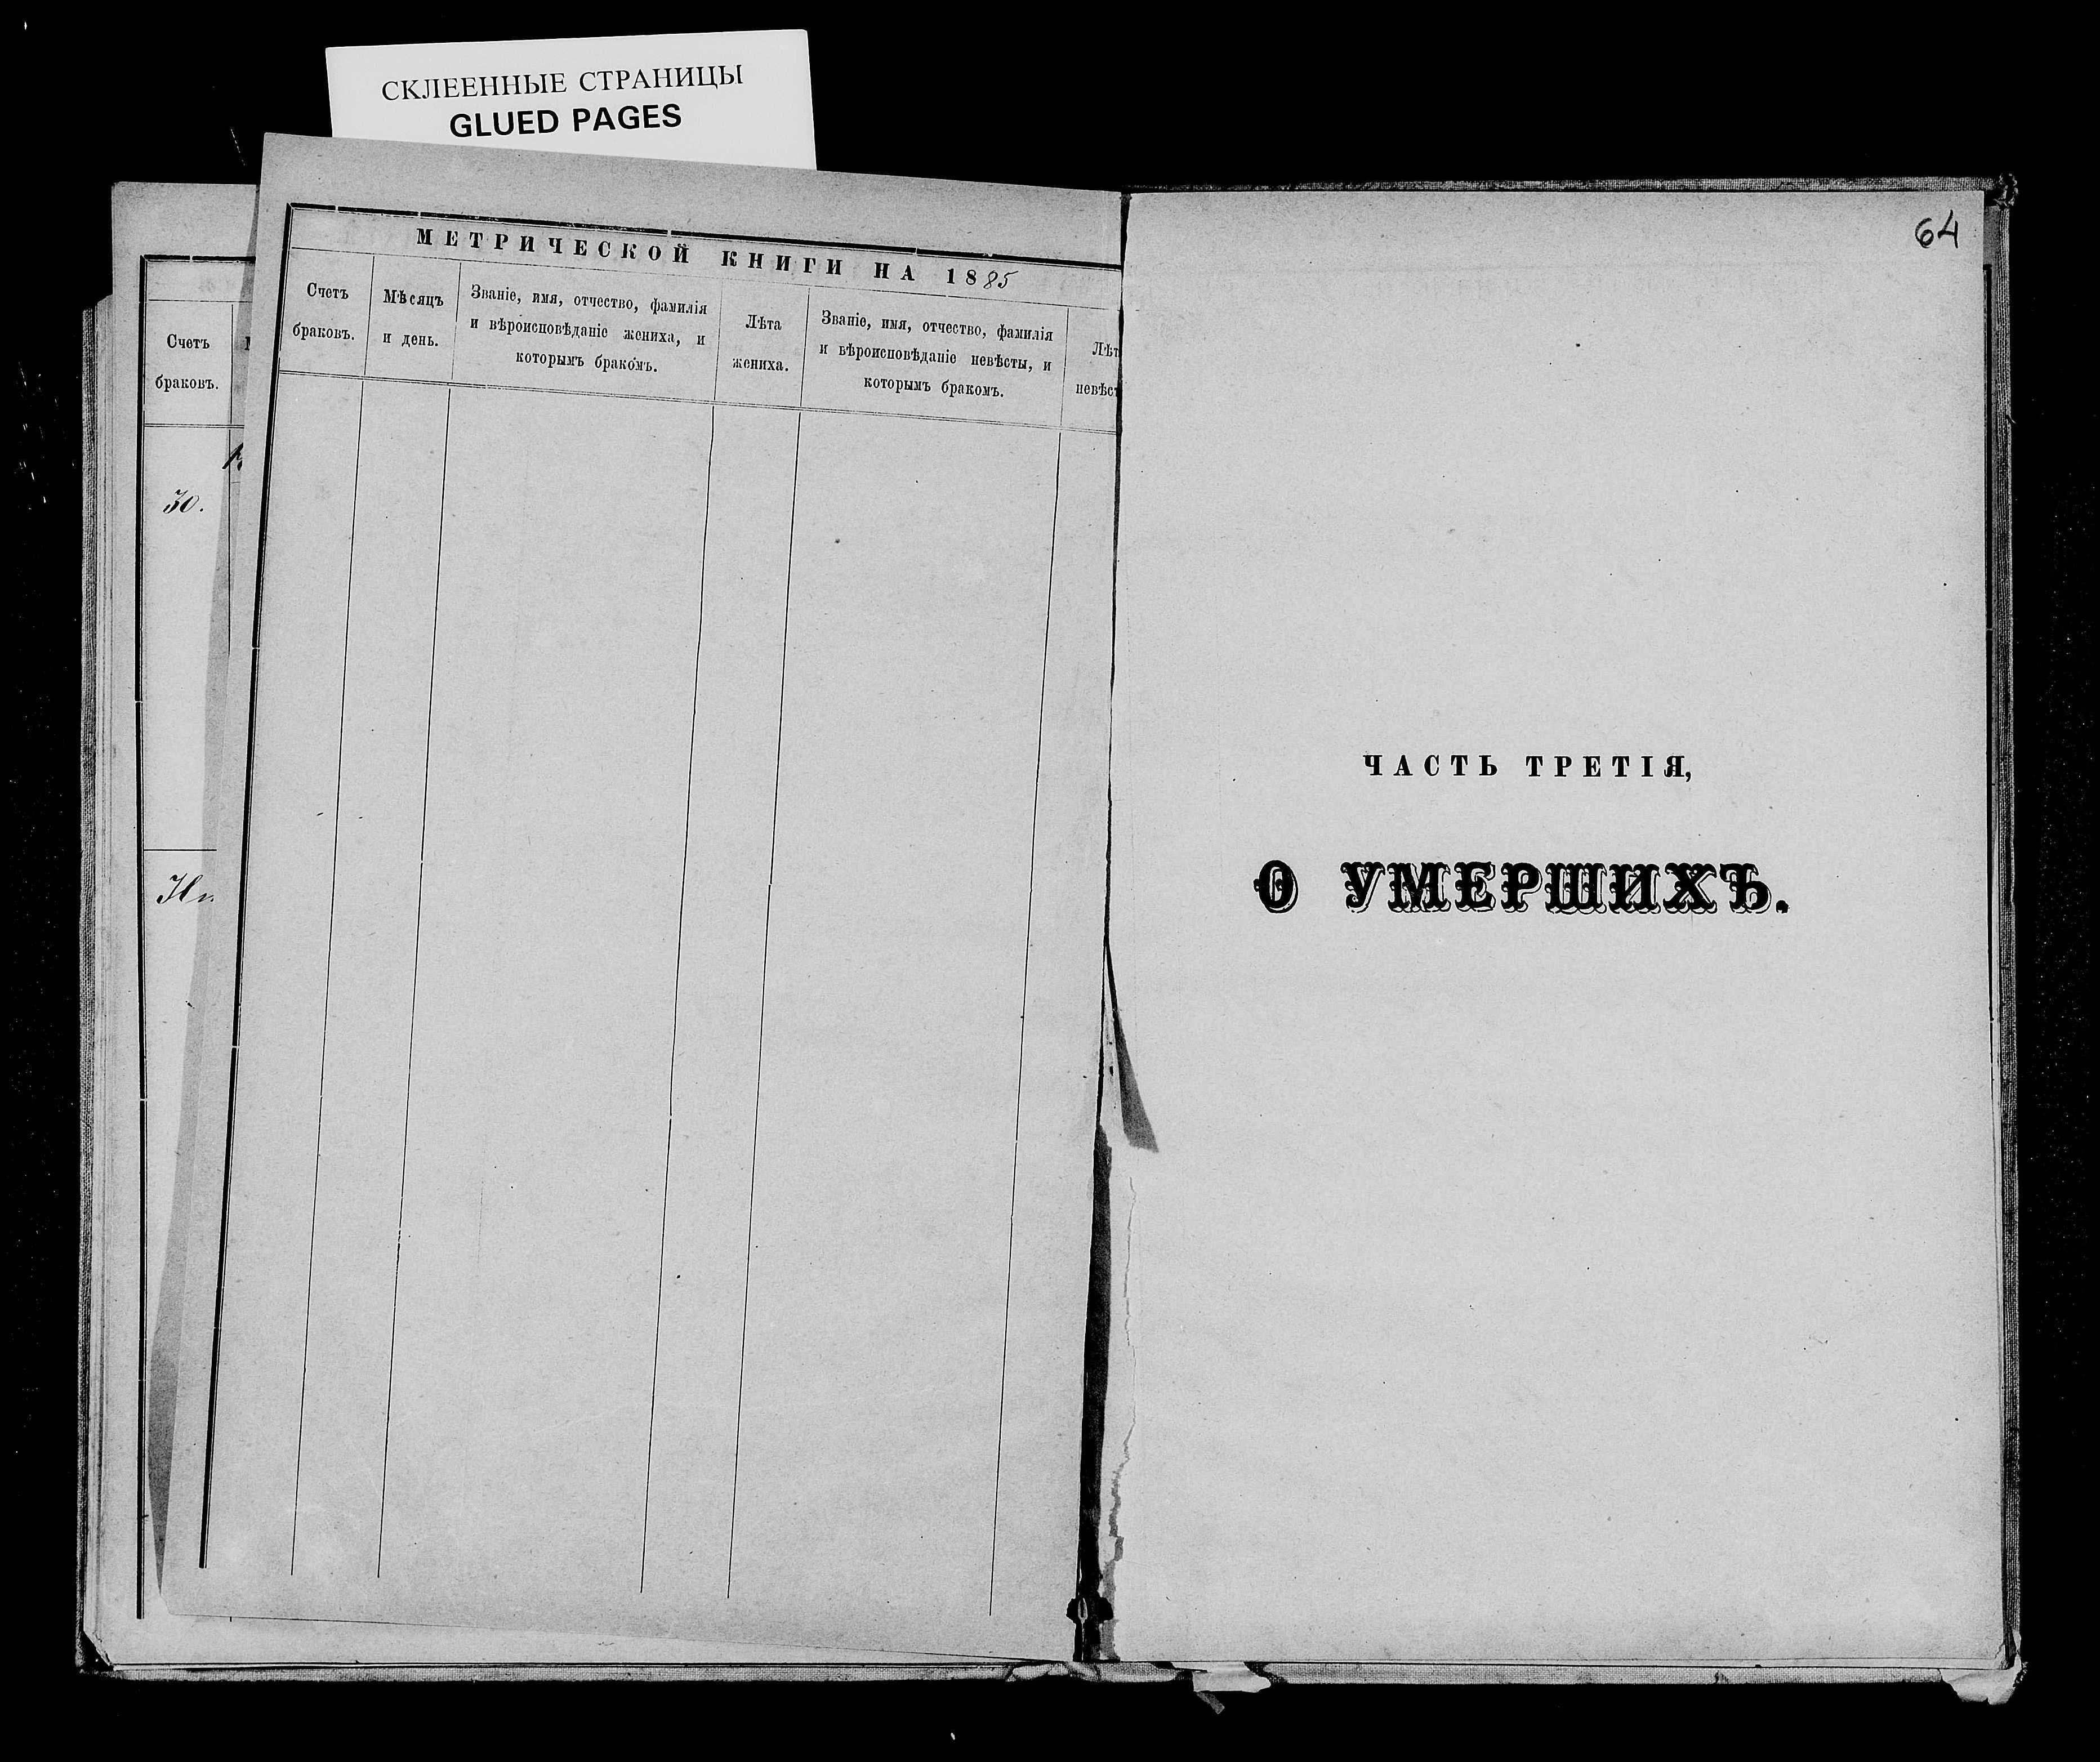 СКЛЕЕННЫЕ СТРАНИЦЫ
GLUED PAGES
Счетъ
браковъ.
30.
МЕТРИЧЕСКОЙ КНИГИ НА 1885
Счетъ
браковъ.
Мѣсяцъ
и день.
Званіе, имя, отчество, фамилія
и вѣроисповѣданіе жениха, и
которымъ бракомъ.
Лѣта
жениха.
Званіе, имя, отчество, фамилія
и вѣроисповѣданіе невѣсты, и
которымъ бракомъ.
Лѣт
невѣст
64
ЧАСТЬ ТРЕТІЯ,
О УМЕРШИХЪ.